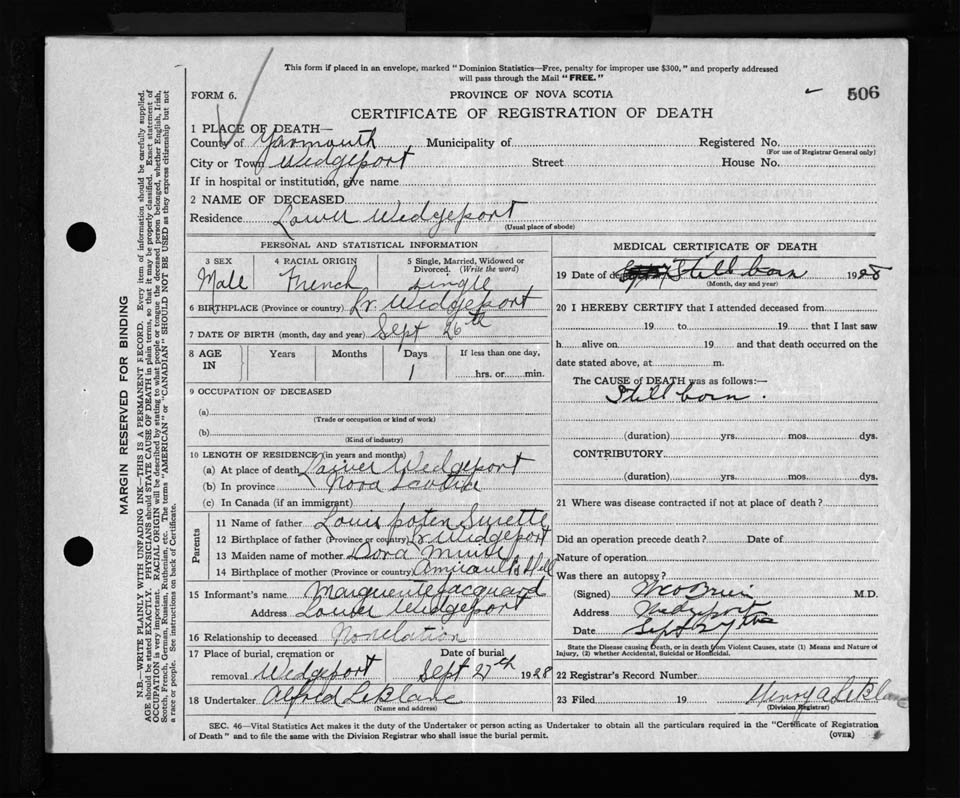 This form if placed in an envelope, marked "Dominion Statistics—Free, penalty for improper use $300," and properly addressed
will pass through the Mail "FREE."
FORM 6.
PROVINCE OF NOVA SCOTIA
506
CERTIFICATE OF REGISTRATION OF DEATH
1 PLACE OF DEATH—
County of Yarmouth Municipality of Registered No.
(For use of Registrar General only)
City or Town Wedgeport Street House No.
If in hospital or institution, give name
2 NAME OF DECEASED
Residence Lower Wedgeport
(Usual place of abode)
PERSONAL AND STATISTICAL INFORMATION
3 SEX 4 RACIAL ORIGIN 5 Single, Married, Widowed or
Divorced. (Write the word)
Male French Single
6 BIRTHPLACE (Province or country) Lr. Wedgeport
7 DATE OF BIRTH (month, day and year) Sept 26th
8 AGE IN Years Months Days If less than one day,
1 hrs. or min.
9 OCCUPATION OF DECEASED
(a)
(Trade or occupation or kind of work)
(b)
(Kind of industry)
10 LENGTH OF RESIDENCE (in years and months)
(a) At place of death Lower Wedgeport
(b) In province Nova Scotia
(c) In Canada (if an immigrant)
Parents
11 Name of father Louis Surette
12 Birthplace of father (Province or country) Lr. Wedgeport
13 Maiden name of mother Dora Muise
14 Birthplace of mother (Province or country) Amirault's Hill
15 Informant's name Marguerite Jacquard
Address Lower Wedgeport
16 Relationship to deceased Norelation
17 Place of burial, cremation or Date of burial
removal Wedgeport Sept 27th 1928
18 Undertaker Alfred LeBlanc
(Name and address)
MEDICAL CERTIFICATE OF DEATH
19 Date of Still born 1928
(Month, day and year)
20 I HEREBY CERTIFY that I attended deceased from
19 to 19 that I last saw
h alive on 19 and that death occurred on the
date stated above, at m.
The CAUSE of DEATH was as follows:—
Still born.
(duration) yrs. mos. dys.
CONTRIBUTORY
(duration) yrs. mos. dys.
21 Where was disease contracted if not at place of death?
Did an operation precede death? Date of
Nature of operation
Was there an autopsy?
(Signed) M.D.
Address Wedgeport
Date Sept
State the Disease causing Death, or in death from Violent Causes, state (1) Means and Nature of
Injury, (2) whether Accidental, Suicidal or Homicidal.
22 Registrar's Record Number
23 Filed 19 Henry A LeBlanc
(Division Registrar)
SEC. 46—Vital Statistics Act makes it the duty of the Undertaker or person acting as Undertaker to obtain all the particulars required in the "Certificate of Registration
of Death" and to file the same with the Division Registrar who shall issue the burial permit.
(OVER)
MARGIN RESERVED FOR BINDING
N.B.—WRITE PLAINLY WITH UNFADING INK—THIS IS A PERMANENT RECORD. Every item of information should be carefully supplied.
AGE should be stated EXACTLY. PHYSICIANS should STATE CAUSE OF DEATH in plain terms, so that it may be properly classified. Exact statement of
OCCUPATION is very important. RACIAL ORIGIN will be described by stating to what people or tongue the deceased person belonged, whether English, Irish,
Scotch, French, German, Russian, Ruthenian, etc. The terms "AMERICAN" or "CANADIAN" SHOULD NOT BE USED as they express citizenship but not
a race or people. See instructions on back of Certificate.